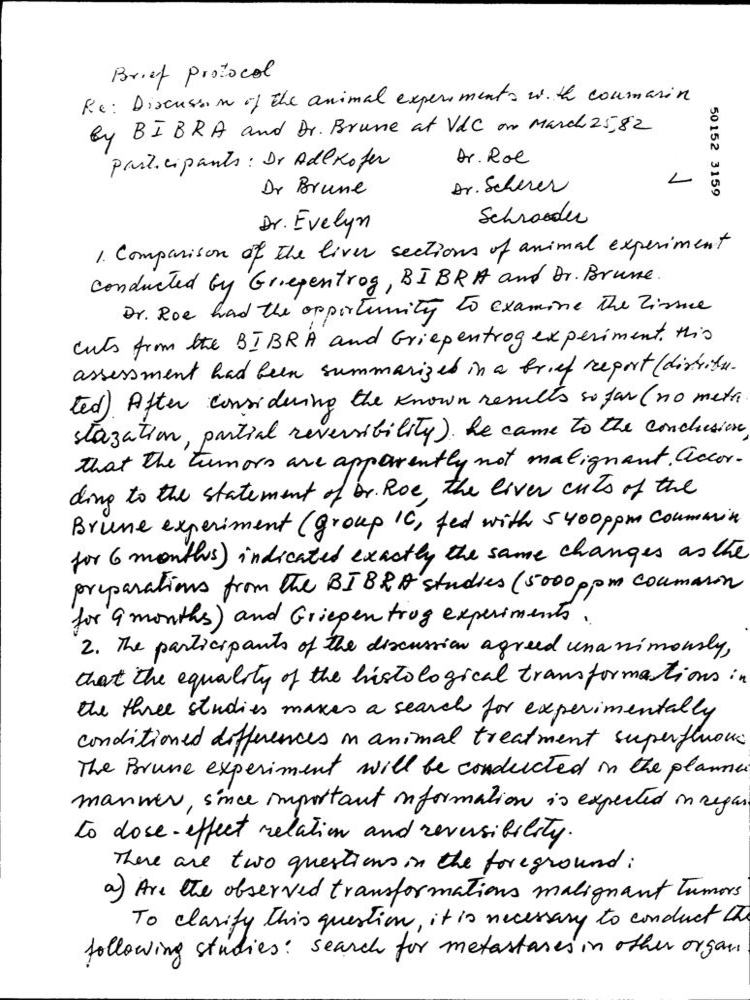 Brief protocol
Re: Discussion of the animal experiments with coumarin
by BIBRA and Dr. Brune at VdC on March 25, 82
participants: Dr Adlkofer Dr. Roe
Dr Brune Dr. Scherer
Dr. Evelyn Schroeder
50152 3159
1. Comparison of the liver sections of animal experiment
conducted by Griepentrog, BIBRA and Dr. Brune.
Dr. Roe had the opportunity to examine the tissue
cuts from the BIBRA and Griepentrog experiment. His
assessment had been summarized in a brief report (distribu-
ted) After considering the known results so far (no meta
stazation, partial reversibility) he came to the conclusion,
that the tumors are apparently not malignant. Accor-
ding to the statement of Dr. Roe, the liver cuts of the
Brune experiment (group 1C, fed with 5400ppm coumarin
for 6 months) indicated exactly the same changes as the
preparations from the BIBRA studies (5000ppm coumarin
for 9 months) and Griepentrog experiments.
2. The participants of the discussion agreed unanimously,
that the equality of the histological transformations in
the three studies makes a search for experimentally
conditioned differences in animal treatment superfluous
The Brune experiment will be conducted in the planned
manner, since important information is expected in regar
to dose-effect relation and reversibility.
There are two questions in the foreground:
a) Are the observed transformations malignant tumors
To clarify this question, it is necessary to conduct the
following studies: search for metastases in other organ